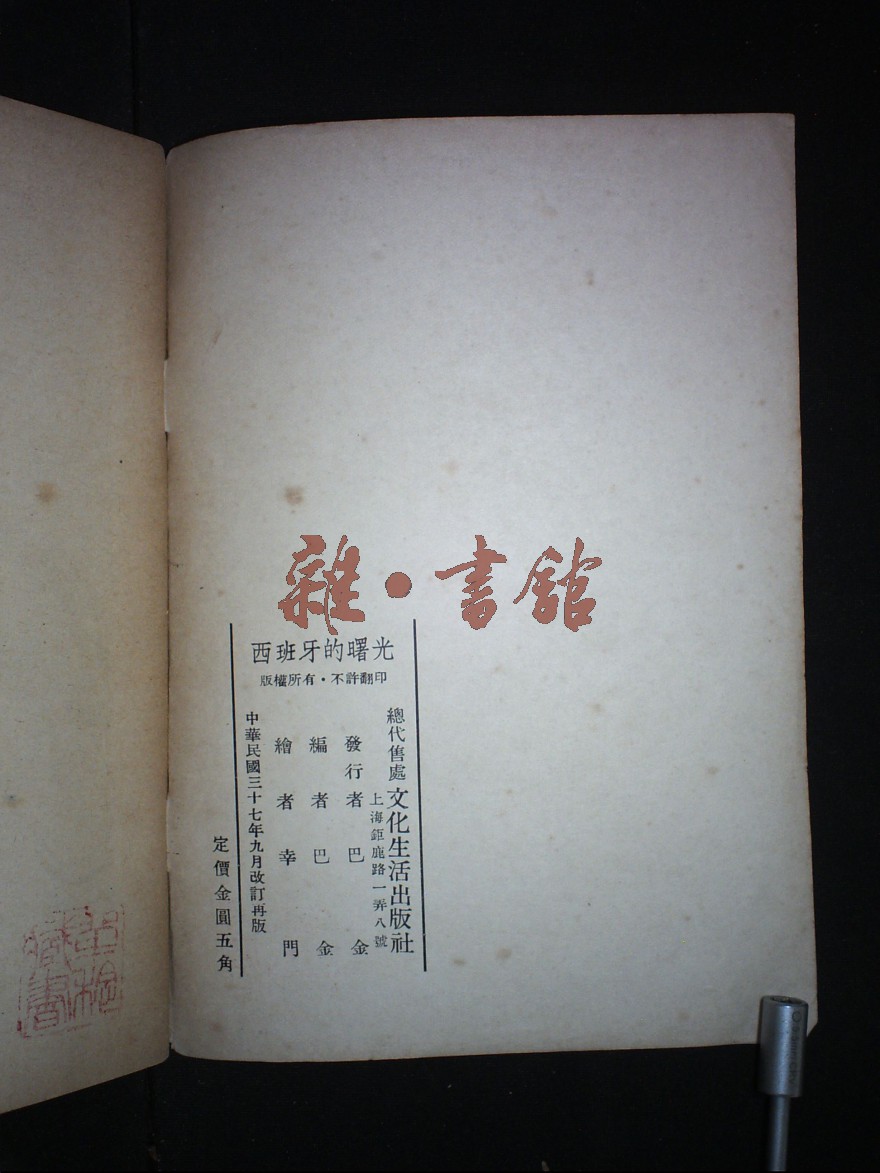 雜•書館
西班牙的曙光
版權所有•不許翻印
總代售處 文化生活出版社
上海鉅鹿路一弄八號
發行者 巴金
編者 巴金
繪者 幸門
中華民國三十七年九月改訂再版
定價金圓五角